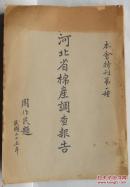 本會特刊第一種
河北省棉產調查報告
周作民題
民國二十五年